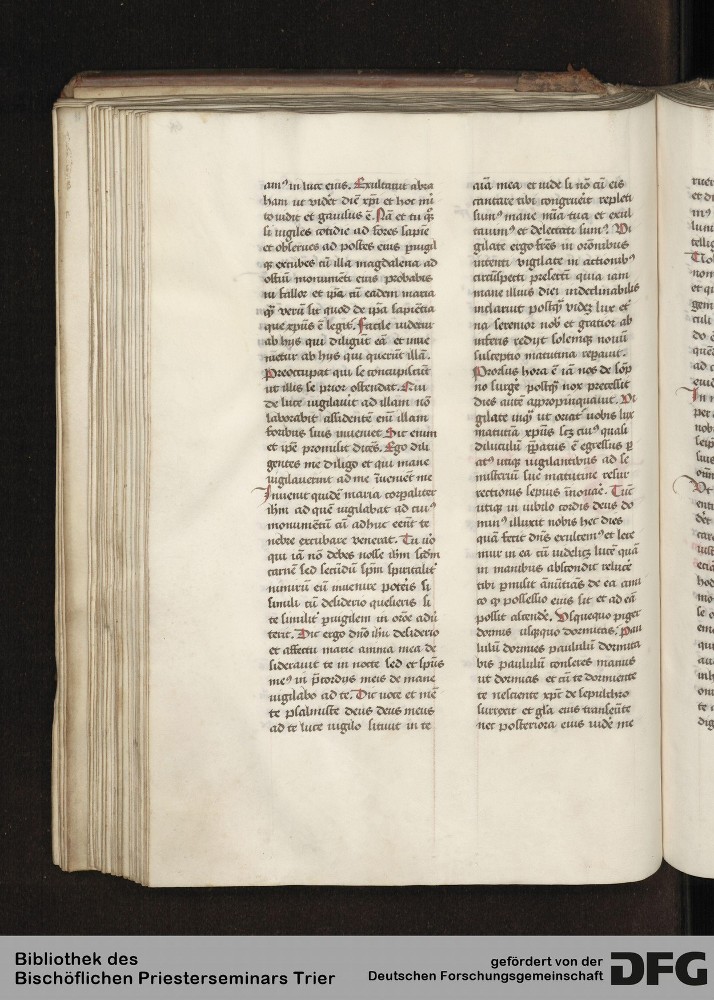 amꝰ in luce eius. Exultauit abra
ham ut videret diē xp̄i et hoc mō
to vidit et gauisus ē. Nā et tu qͣ
si uigiles cotidie ad fores sapiē
et obserues ad postes eius puigil
qꝫ excubes cū illa magdalena ad
ostiū monumēti eius probabis
ni fallor et ip̄a cū eadem maria
qͣ verū sit quod de ip̄a sapiētia
que xp̄us ē legit̄. Facile uidetur
ab hijs qui diligūt eā et inue
nietur ab hijs qui querūt illā.
Preoccupat qui se concupiscūt
ut illis se prior ostendat. Qui
de luce uigilauit ad illam nō
laborabit assidentē enī illam
foribus suis inueniet Sic enim
et ip̄e promisit dicēs. Ego dili
gentes me diligo et qui mane
uigilauerint ad me īuenient me
Inuenit quidē maria corpaliter
ih̄m ad quē uigilabat ad cuiꝰ
monumētū cū adhuc eēnt te
nebre excubare venerat. Tu uō
qui iā nō debes nosse ih̄m scdm̄
carnē sed secūdū sp̄m spiritalit̄
nimirū eū inuenire poteris si
simili cū desiderio quesieris si
te similit̄ puigilem in orōe adū
terit. Dic ergo dn̄o ih̄u desiderio
et affectu marie anima mea de
siderauit te in nocte sed et sp̄us
meꝰ in p̄cordijs meis de mane
uigilabo ad te. Dic uoce et mē
te psalmiste deus deus meus
ad te luce uigilo sitiuit in te
aīa mea et uide si nō cū eis
cantare tibi congruerit repleti
sumꝰ mane mīa tua et exul
tauimꝰ et delectati sumꝰ. Vi
gilate ergo fr̄es in orōnibus
intenti vigilate in actionibꝰ
circūspecti presertī quia iam
mane illius diei indeclinabilis
inclaruit postqͣ videꝫ lux et̄
na serenior nob̄ et gratior ab
inferis redijt solemqꝫ nouū
susceptio matutina repauit.
Prorsus hora ē iā nos de sōp
no surge postqͣ nox precessit
dies autē appropinquauit. Vi
gilate inqͣ ut oriat̄ uobis lux
matutīa xp̄us scꝫ cuiꝰ quasi
diluculū p̄patus ē egressus p
atꝰ utiqꝫ uigilantibus ad se
misteriū sue matutine resur
rectionis sepius īnouare. Tūc
utiqꝫ in iubilo cordis deus do
minꝰ illuxit nobis hec dies
quā fecit dn̄s exultemꝰ et lete
mur in ea cū uidelicꝫ lucē quā
in manibus abscondit reluce
tibi pmisit ānūtiās de ea ami
co qꝫ possessio eius sit et ad eā
possit ascende. Vsquequo piger
dormis usqꝫquo dormitas. Pau
lulū dormies paululū dormita
bis paululū conseres manus
ut dormias et cū te dormiente
te nesciente xp̄c de sepulchro
surrexit et gl̄a eius transeūte
nec posteriora eius uidē me
Bibliothek des
Bischöflichen Priesterseminars Trier
gefördert von der
Deutschen Forschungsgemeinschaft
DFG